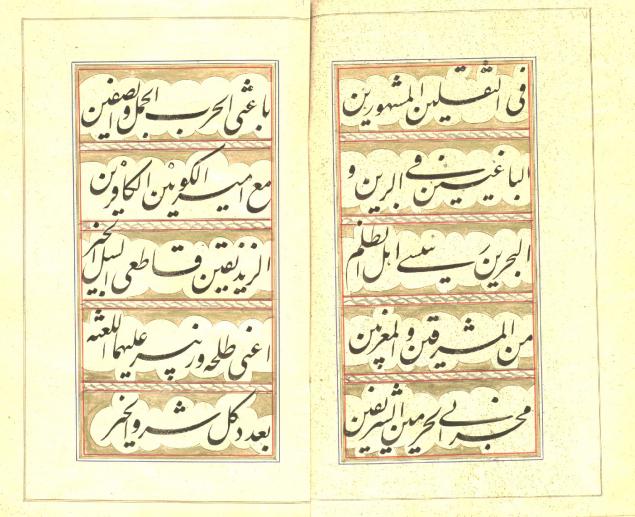 فی الثقلین المشهورین
الباغیین فی البرین و
البحرین رئیسی اهل الظلم
من المشرقین و المغربین
مخربی الحرمین الشریفین
باعثی الحرب الجمل و الصفین
مع امیر الکونین الکافرین
الزندیقین قاطعی السبل الخیر
اعنی طلحه و زبیر علیهما اللعنه
بعدد کل شر و الخیر